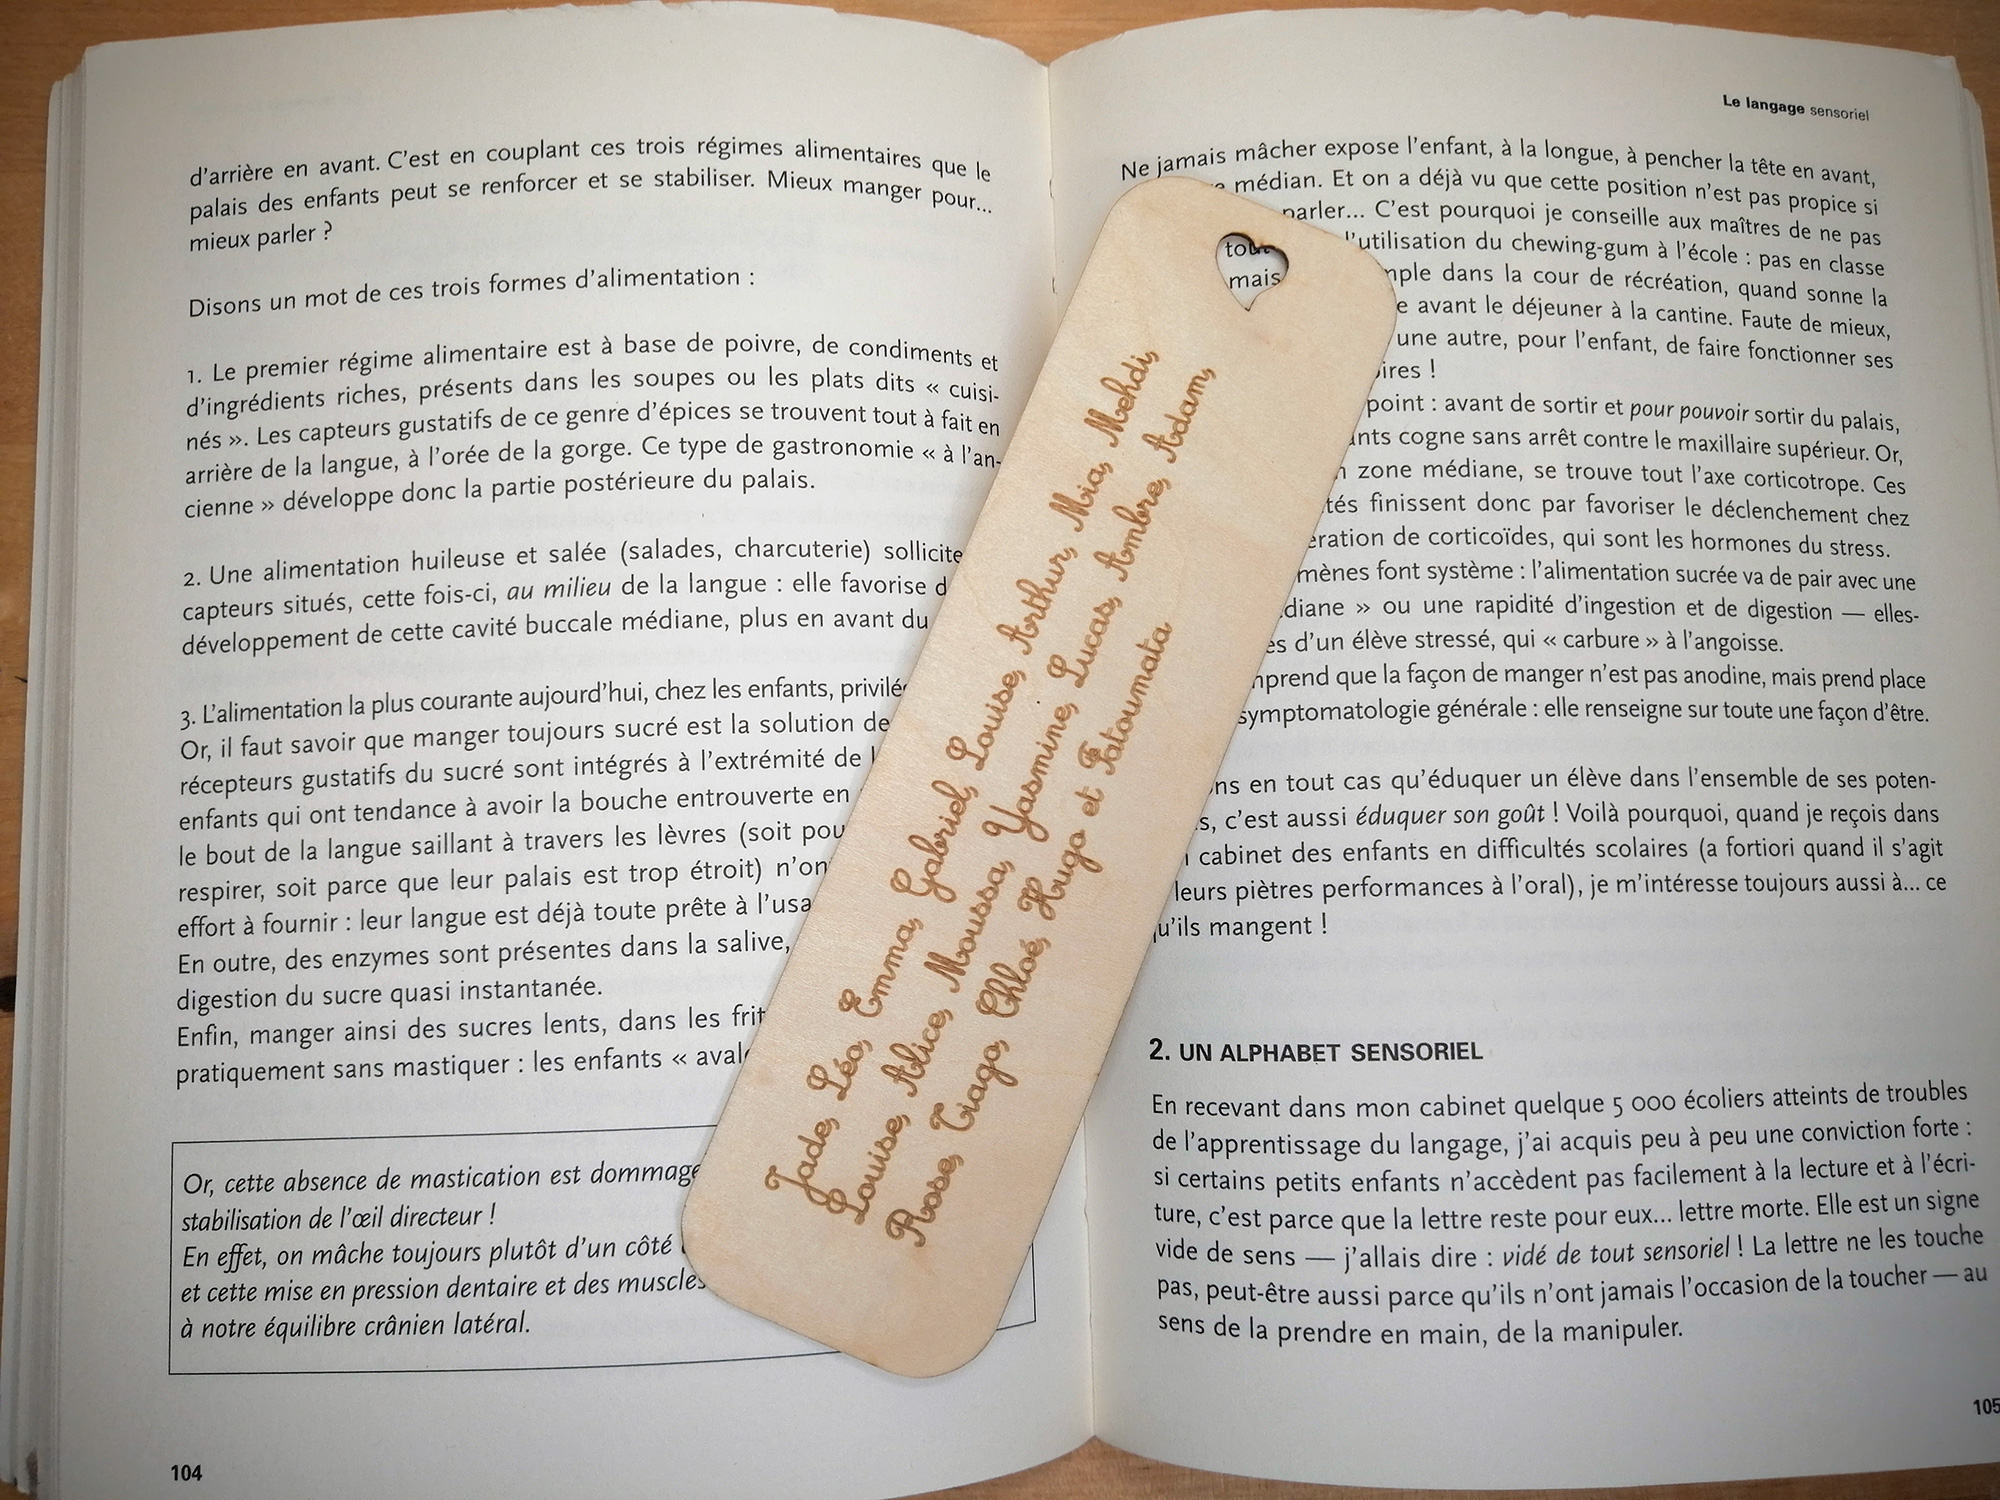 d'arrière en avant. C'est en couplant ces trois régimes alimentaires que le
palais des enfants peut se renforcer et se stabiliser. Mieux manger pour...
mieux parler ?
Disons un mot de ces trois formes d'alimentation :
1. Le premier régime alimentaire est à base de poivre, de condiments et
d'ingrédients riches, présents dans les soupes ou les plats dits « cuisi-
nés ». Les capteurs gustatifs de ce genre d'épices se trouvent tout à fait en
arrière de la langue, à l'orée de la gorge. Ce type de gastronomie « à l'an-
cienne » développe donc la partie postérieure du palais.
2. Une alimentation huileuse et salée (salades, charcuterie) sollicite
capteurs situés, cette fois-ci, au milieu de la langue : elle favorise
développement de cette cavité buccale médiane, plus en avant du
3. L'alimentation la plus courante aujourd'hui, chez les enfants,
Or, il faut savoir que manger toujours sucré est la solution
récepteurs gustatifs du sucré sont intégrés à l'extrémité de
enfants qui ont tendance à avoir la bouche entrouverte en
le bout de la langue saillant à travers les lèvres (soit
respirer, soit parce que leur palais est trop étroit)
effort à fournir : leur langue est déjà toute prête à
En outre, des enzymes sont présentes dans la salive,
digestion du sucre quasi instantanée.
Enfin, manger ainsi des sucres lents, dans les
pratiquement sans mastiquer : les enfants «
Or, cette absence de mastication est
stabilisation de l'œil directeur !
En effet, on mâche toujours plutôt d'un côté
et cette mise en pression dentaire et des muscles
à notre équilibre crânien latéral.
104
Jade, Léo, Emma, Gabriel, Louise, Arthur, Mia, Mehdi,
Louise, Alice, Moussa, Yasmine, Lucas, Ambre, Adam,
Rose, Tiago, Chloé, Hugo et Fatoumata
Le langage sensoriel
Ne jamais mâcher expose l'enfant, à la longue, à pencher la tête en avant,
médian. Et on a déjà vu que cette position n'est pas propice si
parler... C'est pourquoi je conseille aux maîtres de ne pas
l'utilisation du chewing-gum à l'école : pas en classe
mais dans la cour de récréation, quand sonne la
avant le déjeuner à la cantine. Faute de mieux,
une autre, pour l'enfant, de faire fonctionner ses
!
point : avant de sortir et pour pouvoir sortir du palais,
cogne sans arrêt contre le maxillaire supérieur. Or,
zone médiane, se trouve tout l'axe corticotrope. Ces
finissent donc par favoriser le déclenchement chez
de corticoïdes, qui sont les hormones du stress.
font système : l'alimentation sucrée va de pair avec une
» ou une rapidité d'ingestion et de digestion — elles-
d'un élève stressé, qui « carbure » à l'angoisse.
que la façon de manger n'est pas anodine, mais prend place
symptomatologie générale : elle renseigne sur toute une façon d'être.
en tout cas qu'éduquer un élève dans l'ensemble de ses poten-
c'est aussi éduquer son goût ! Voilà pourquoi, quand je reçois dans
cabinet des enfants en difficultés scolaires (a fortiori quand il s'agit
leurs piètres performances à l'oral), je m'intéresse toujours aussi à... ce
qu'ils mangent !
2. UN ALPHABET SENSORIEL
En recevant dans mon cabinet quelque 5 000 écoliers atteints de troubles
de l'apprentissage du langage, j'ai acquis peu à peu une conviction forte :
si certains petits enfants n'accèdent pas facilement à la lecture et à l'écri-
ture, c'est parce que la lettre reste pour eux... lettre morte. Elle est un signe
vide de sens — j'allais dire : vidé de tout sensoriel ! La lettre ne les touche
pas, peut-être aussi parce qu'ils n'ont jamais l'occasion de la toucher — au
sens de la prendre en main, de la manipuler.
105